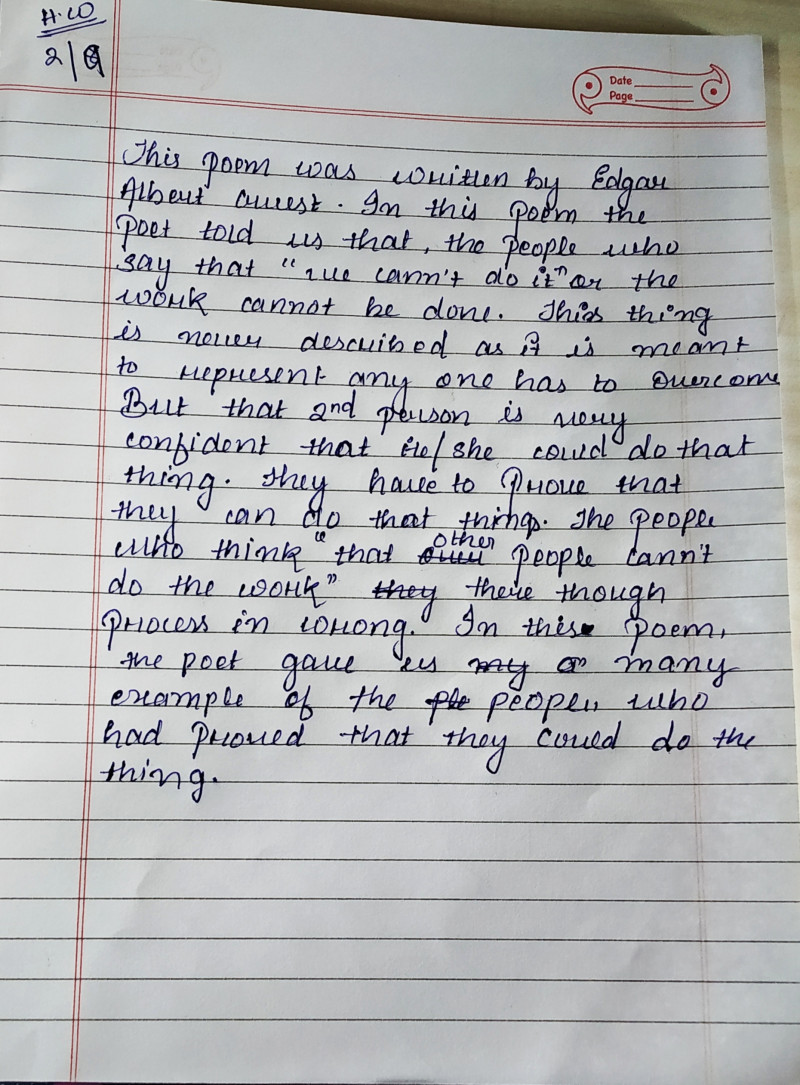 H.W
2/9
Date
Page
This poem was written by Edgar
Albert Guest. In this poem the
poet told us that, the people who
say that "we cann't do it" or the
work cannot be done. This thing
is never described as it is meant
to represent any one has to overcome
But that 2nd person is very
confident that he/she could do that
thing. They have to prove that
they can do that thing. The people
other
who think "that people cann't
do the work" they there though
process in wrong. In this poem,
the poet gave us many
example of the people, who
had proved that they could do the
thing.